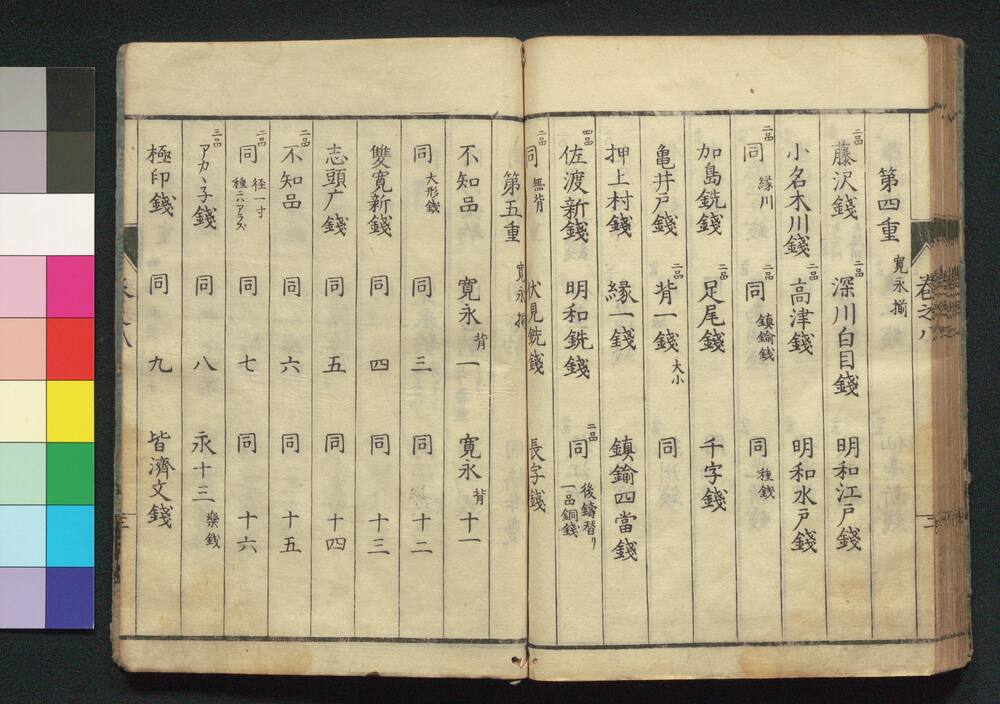 第四重 寛永揃
二品 藤沢錢 二品 深川白目錢 明和江戸錢
小名木川錢 二品 高津錢 明和水戸錢
二品 同 縁川 二品 同 鎮鍮錢 同 種銭
加島銑錢 二品 足尾錢 千字錢
亀井戸錢 二品 背一錢 大小 同
押上村錢 縁一錢 鎮鍮四當錢
四品 佐渡新錢 明和銑錢 二品 同 後鑄替り 一品銅錢
二品 同 無背 伏見銑錢 長字錢
巻之八
三
第五重 寛永揃
不知品 寛永 背 一 寛永 背 十一
同 大形錢 同 三 同 十二
雙寛新錢 同 四 同 十三
志頭广錢 同 五 同 十四
二品 不知品 同 六 同 十五
二品 同 径一寸 種ニハアラズ 同 七 同 十六
三品 アカヽ子錢 同 八 永十三 樂銭
極印錢 同 九 皆濟文錢